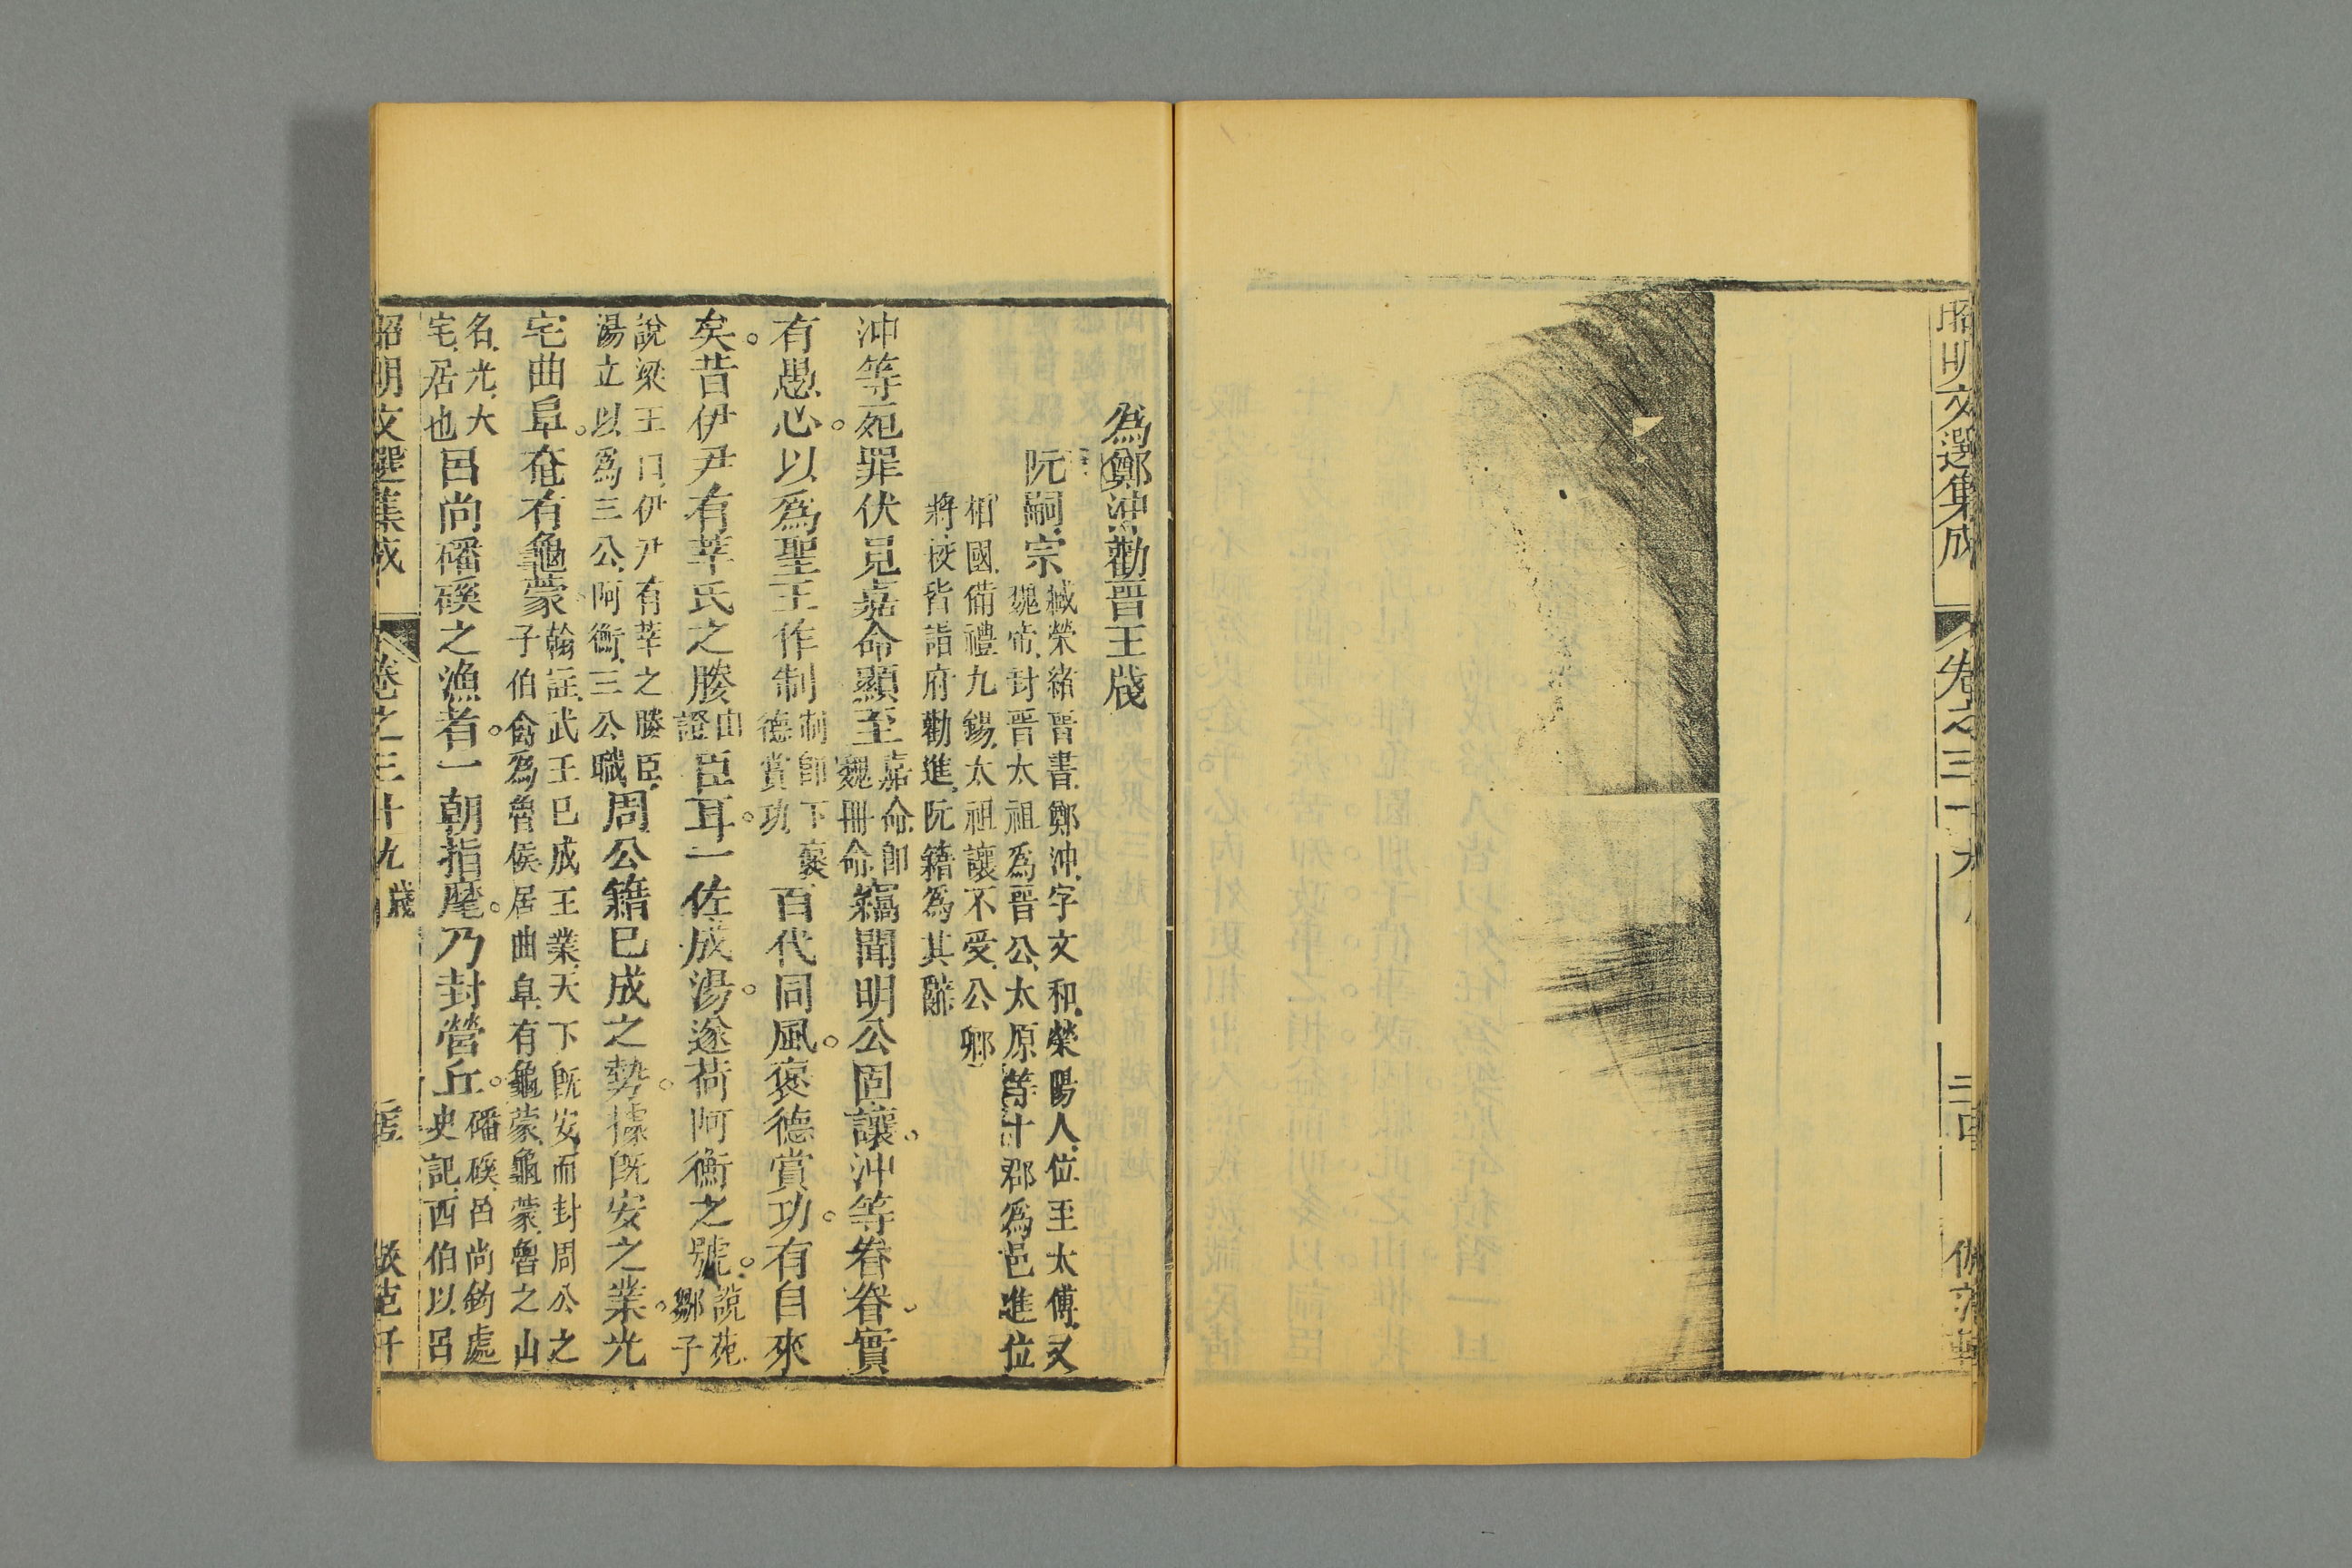 昭明文選集成 卷之三十九
為鄭沖勸晉王牋
阮嗣宗
臧榮緒晉書鄭沖字文和滎陽人位至太傅又
魏帝封晉太祖為晉公太原等十郡為邑進位
相國備禮九錫太祖讓不受公卿
將校皆詣府勸進阮籍為其辭
沖等死罪伏見嘉命顯至嘉命卽魏冊命竊聞明公固讓沖等眷眷實
有愚心以為聖王作制制卽下褒德賞功百代同風褒德賞功有自來
矣昔伊尹有莘氏之媵臣耳一佐成湯遂荷阿衡之號說苑鄒子
說梁王曰伊尹有莘之媵臣
湯立以為三公阿衡三公職周公籍已成之勢據旣安之業光
宅曲阜奄有龜蒙翰註武王已成王業天下旣安而封周公之
子伯禽為魯侯居曲阜有龜蒙龜蒙魯之山
名光大
宅居也呂尚磻磎之漁者一朝指麾乃封營丘磻磎呂尚釣處
史記西伯以呂
昭明文選集成 卷之三十九 牋